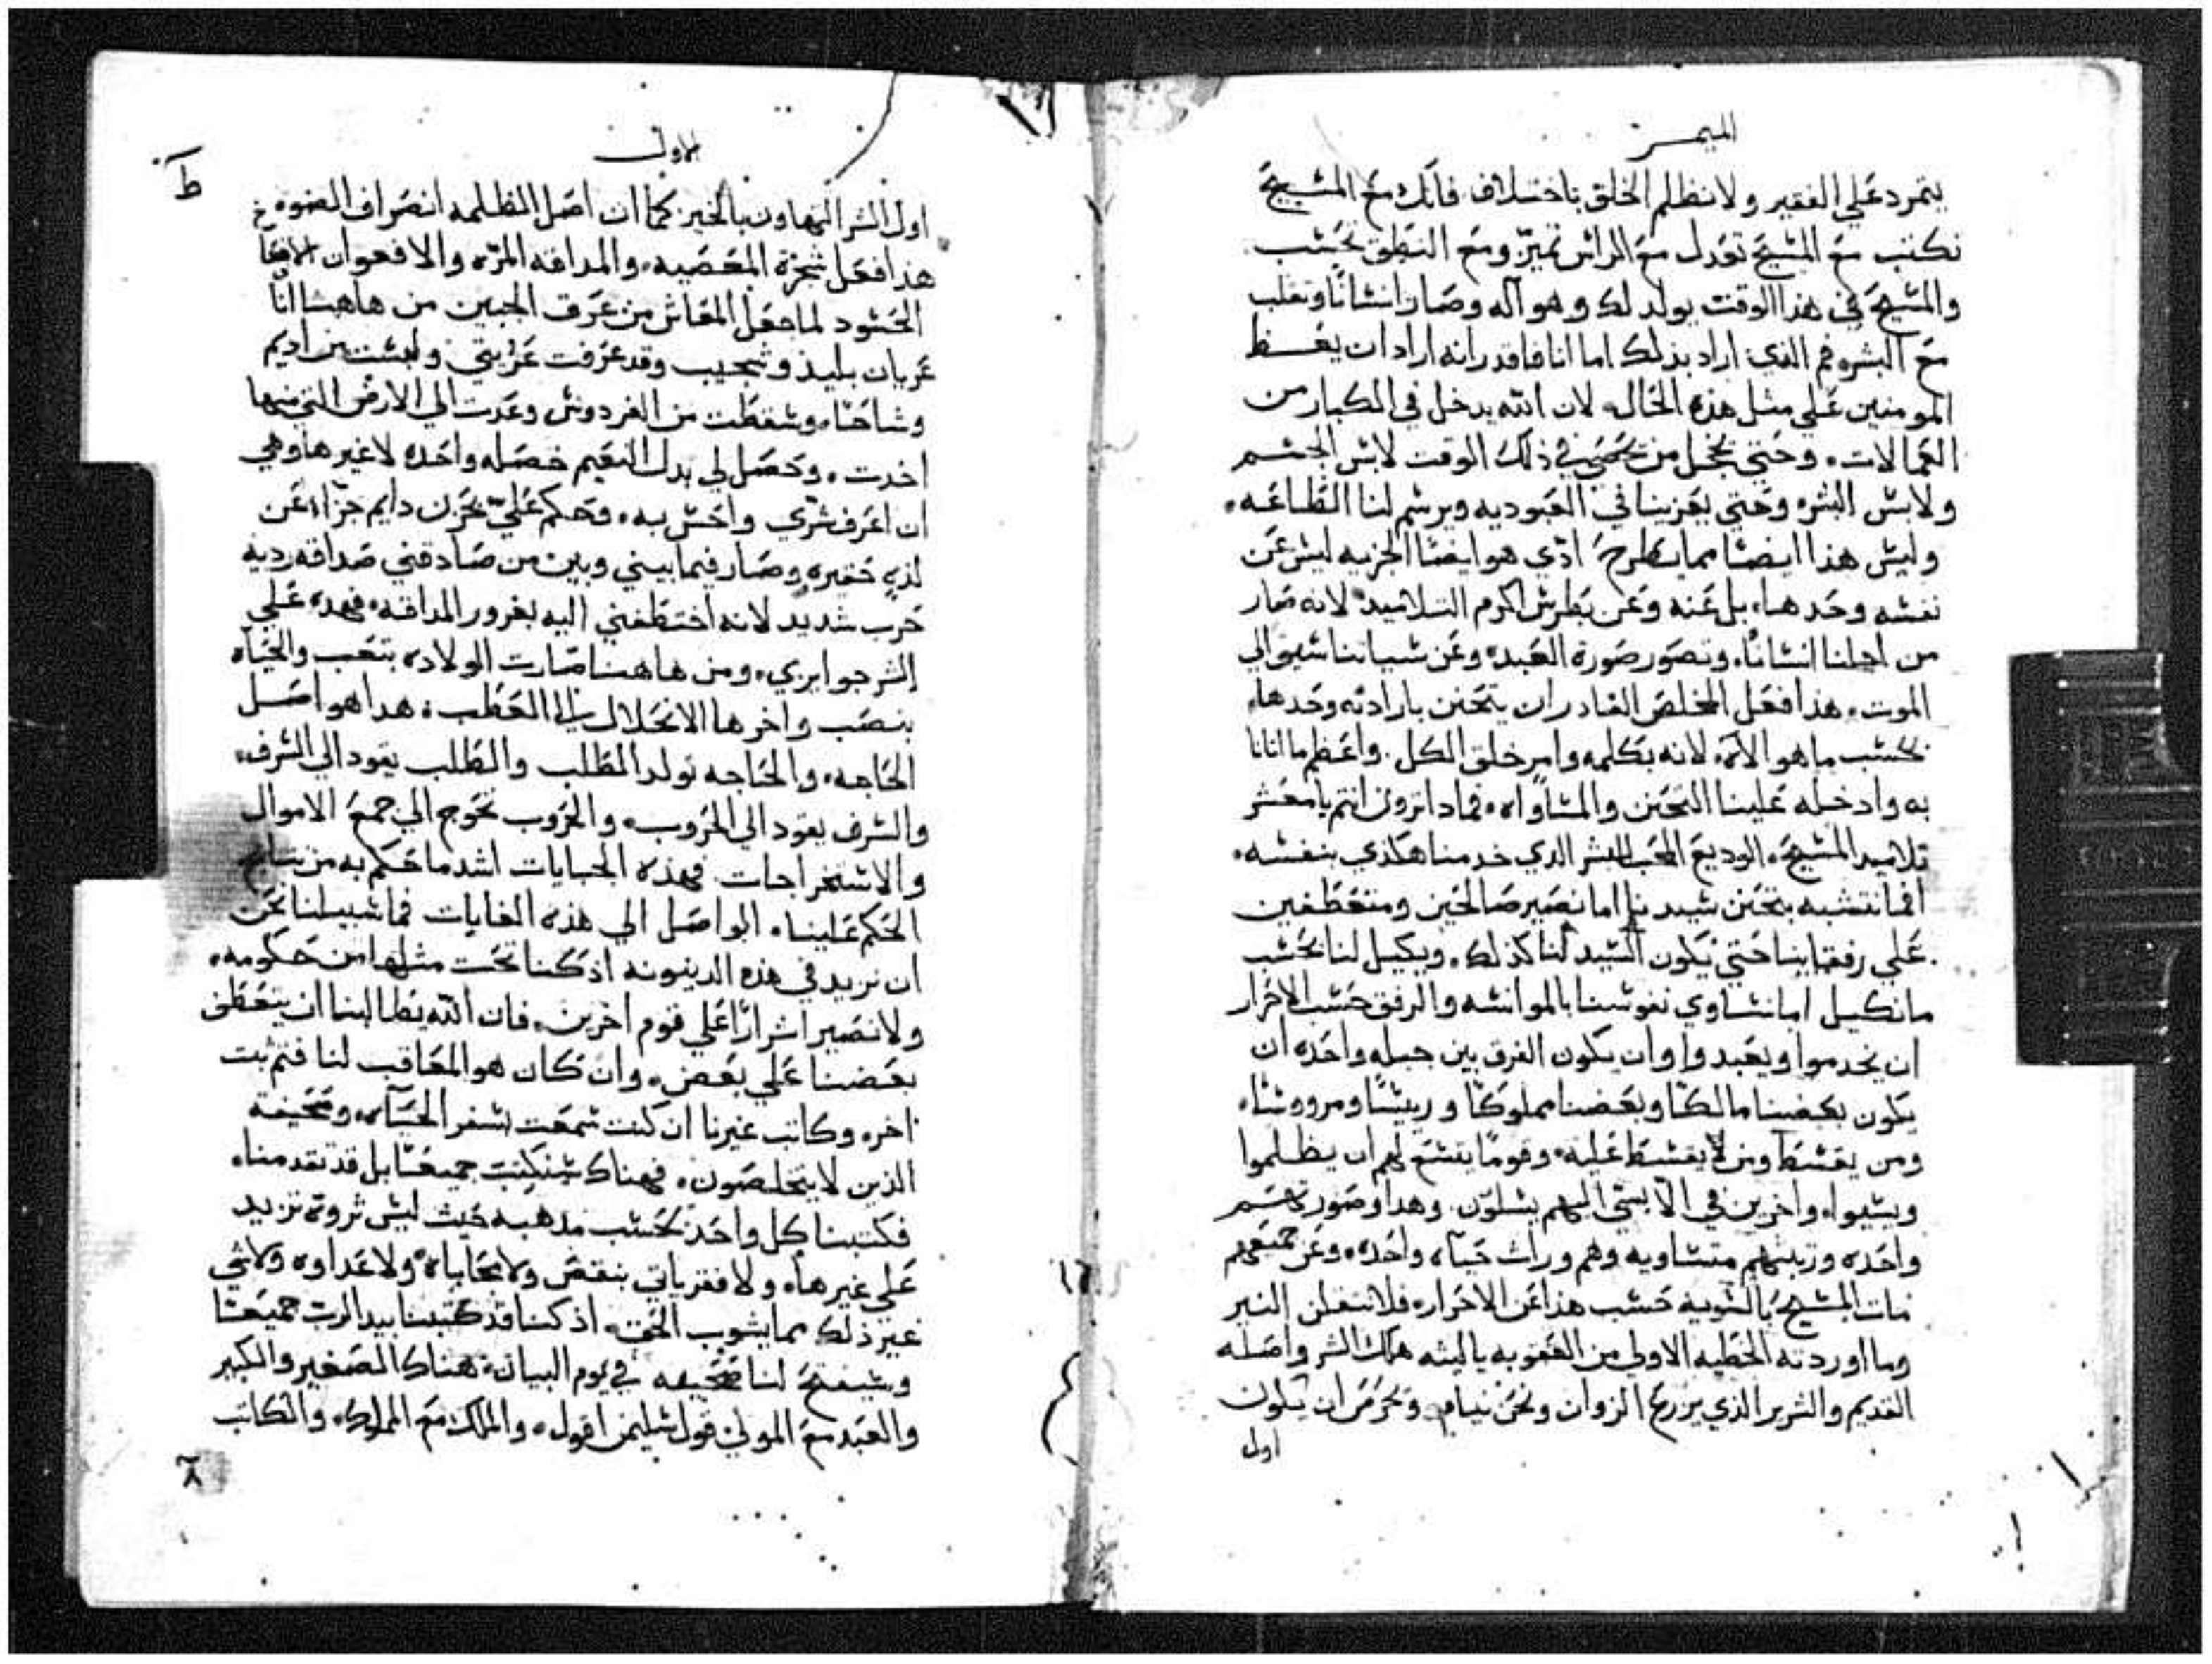 الميمر
يتمرد علي الفقير ولا نظلم الخلق باختلاف فانك مع المسيح
تكتب مع المسيح تعدل مع الراس تميز ومع النطق تحسب
والمسيح في هذا الوقت يولد لك وهو اله وصار انسانا وتقلب
مع البشر فم الذي اراد بذلك اما انا فاقدر انه اراد ان يعظ
المومنين علي مثل هذه الحال لان الله يدخل في الكبار من
الكمالات وحتي يخجل من في ذلك الوقت لابس الجسم
ولابس البشره وحتي يعزينا في العبوديه ويرسم لنا الطاعه
وليس هذا ايضا مما يطرح ادي هو ايضا الجزيه ليس عن
نفسه وحدها بل عنه وعن بطرس اكرم التلاميد لانه صار
من اجلنا انسانا وتصور صورة العبد وعن سياتنا سيق الي
الموت هذا فعل المخلص القادر ان يتحنن بارادته وحدها
بحسب ما هو الاه لانه بكلمه وامر خلق الكل واعظم ما اتانا
به وادخله علينا التحنن والمساواه فمادا ترون انتم يا معشر
تلاميد المسيح الوديع المحب البشر الدي خدمنا هكذي بنفسه
افما نتشبه بتحنن سيدنا اما نصير صالحين ومتعطفين
علي رفقاينا حتي يكون السيد لنا كذلك ويكيل لنا بحسب
ما نكيل اما نساوي نفوسنا بالموانسه والرفق حسب الاحرار
ان يخدموا ويعبدوا وان يكون الفرق بين جبله واحده ان
يكون بعضنا مالكا وبعضنا مملوكا وريسا ومرووسا
ومن يقسط ومن لا يقسط عليه وقوما يتسع لهم ان يظلموا
ويسيوا واخرين في الا يسي اليهم يسلون وهدا وصورتهم
واحده ورتبتهم متساويه وهم وراث حياه واحده وعن جميعهم
مات المسيح بالسويه حسب هذا عن الاحرار فلا تنفلن النير
وما اوردته الخطيه الاولي من العقوبه يا ليته هلك الشر واصله
القديم والشرير الذي يزرع الزوان ونحن نيام وتحرص ان يكون
اول
الاول
ط
اول الشر التهاون بالخير كما ان اصل الظلمه انصراف الضوء
هذا فعل شجرة المعصيه والمداقه المره والافعوان
الحسود لما جعل المعاش من عرق الجبين من هاهنا انا
عريان بليد وعجيب وقد عرفت عريتي ولبست من اديم
وشاحا وسقطت من الفردوس وعدت الي الارض التي منها
اخدت وحصل لي بدل النعيم خصله واحده لا غيرها وهي
ان اعرف شري واحس به وحكم علي بحزن دايم جزاء عن
لذه حقيره وصار فيما بيني وبين من صادقني صداقه رديه
حرب شديد لانه اختطفني اليه بغرور المداقه فهده علي
الشر جوايزي ومن هاهنا صارت الولاده بتعب والحياه
بنصب واخرها الانحلال الي العطب هدا هو اصل
الحاجه والحاجه تولد المطلب والطلب يقود الي السرف
والسرف يقود الي الحروب والحروب تحوج الي جمع الاموال
والاستخراجات فهذه الجبايات اشد ما حكم به من
الحكم علينا الواصل الي هذه الغايات فما سبيلنا نحن
ان نزيد في هذه الدينونه اذ كنا تحت مثلها من حكومه
ولا نصير اشرارا علي قوم اخرين فان الله يطالبنا ان يتعطف
بعضنا علي بعض وان كان هو المعاقب لنا فتم ثبت
اخره وكاتب غيرنا ان كنت سمعت بسفر الحياه وصحيفة
الذين لا يتخلصون فهناك سنكتب جميعا بل قد تقدمنا
فكتبنا كل واحد بحسب مدهبه حيث ليس ثروة تزيد
علي غيرها ولا فقر ياتي بنقص ولا محاباه ولا عداوه ولا شي
غير ذلك مما يشوب الحق اذ كنا قد كتبنا بيد الرب جميعا
وسيفتح لنا صحيفه في يوم البيان هناك الصغير والكبير
والعبد مع المولي قول سليمن اقول والملك مع المملوك والكاتب
٨